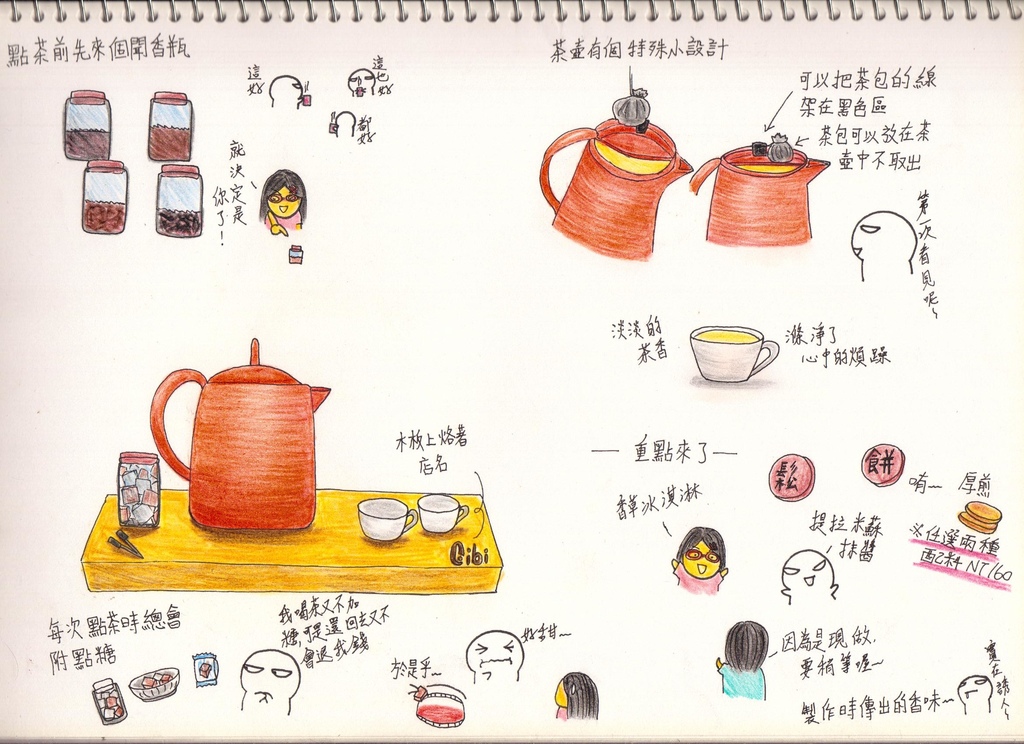 點茶前先來個聞香瓶
這
好
這也
好
都
好
就決定是
你了！
茶壺有個特殊小設計
可以把茶包的線
架在黑色區
茶包可以放在茶
壺中不取出
第一次看見呢~
淡淡的
茶香
滌淨了
心中的煩躁
木板上烙著
店名
Cibi
每次點茶時總會
附點糖
我喝茶又不加
糖，可是還回去又不
會退我錢
於是乎~
好甜~
— 重點來了 —
鬆
餅
香草冰淇淋
提拉米蘇
抹醬
唷~ 厚煎
※任選兩種
配料 NT160
因為是現做，
要稍等喔~
製作時傳出的香味~
實在誘人~